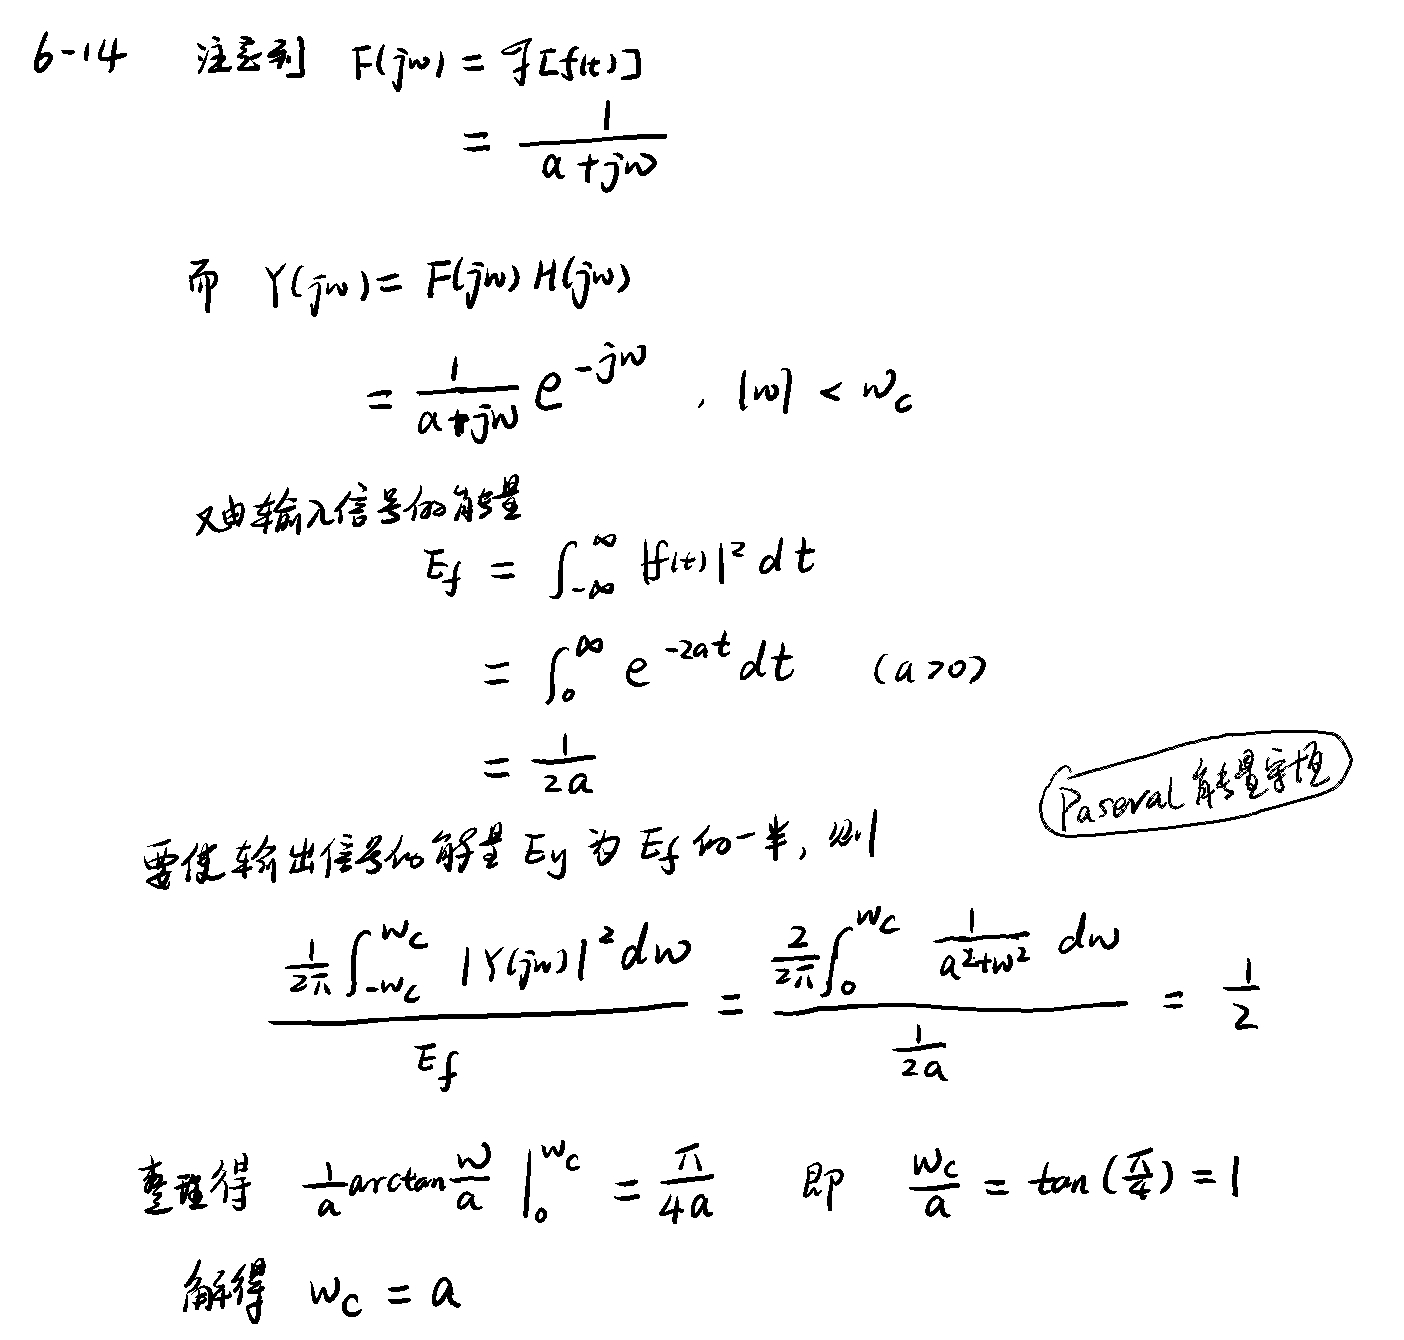 6-14 注意到 F(jω) = ℱ[f(t)]
= \frac{1}{a+jω}
而 Y(jω) = F(jω) H(jω)
= \frac{1}{a+jω} e^{-jω} , |ω| < ω_c
又由输入信号的能量
E_f = \int_{-∞}^{∞} |f(t)|^2 dt
= \int_0^{∞} e^{-2at} dt (a>0)
= \frac{1}{2a}
Paseval 能量守恒
要使输出信号的能量 E_y 为 E_f 的一半, 则
\frac{\frac{1}{2π}\int_{-ω_c}^{ω_c} |Y(jω)|^2 dω}{E_f} = \frac{\frac{2}{2π}\int_0^{ω_c} \frac{1}{a^2+ω^2} dω}{\frac{1}{2a}} = \frac{1}{2}
整理得 \frac{1}{a} arctan\frac{ω}{a} |_0^{ω_c} = \frac{π}{4a} 即 \frac{ω_c}{a} = tan(\frac{π}{4}) = 1
解得 ω_c = a